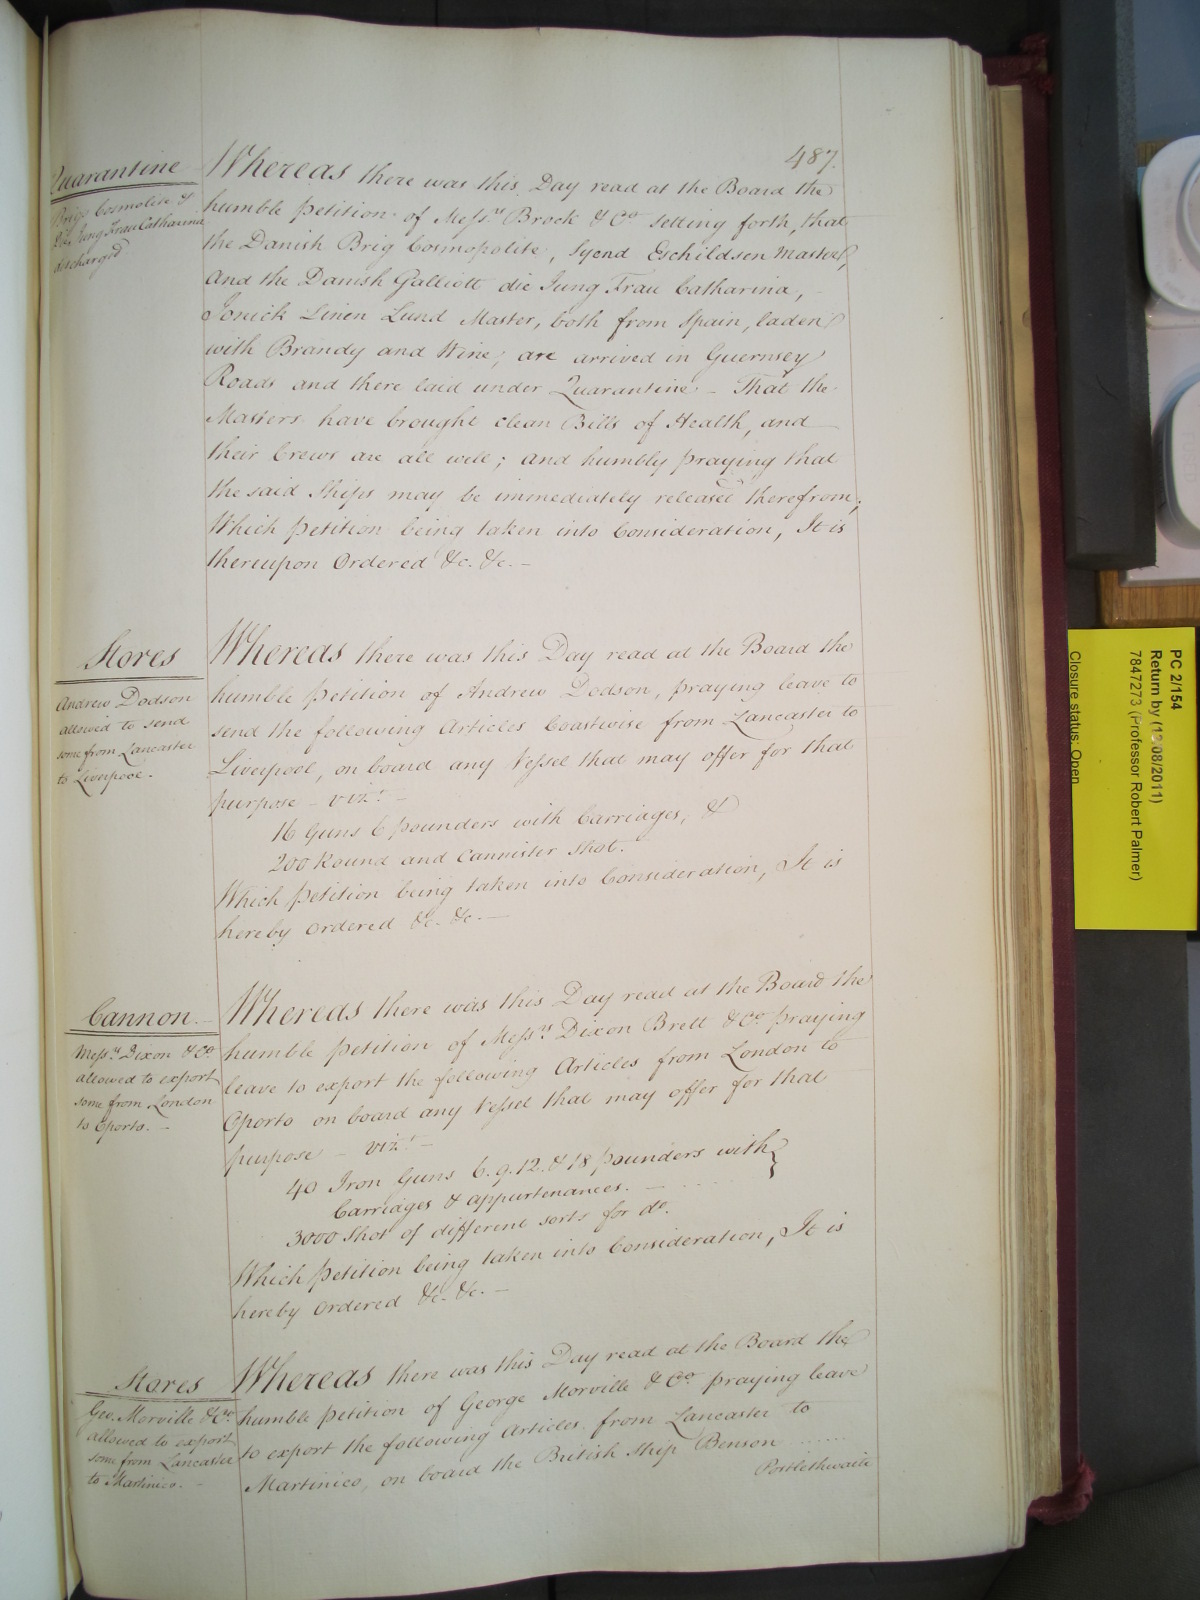 487.
Quarantine
Brigs Cosmolite &
Die Jung Frau Catharina
discharged
Whereas there was this Day read at the Board the
humble Petition of Mess.rs Brock & Co. setting forth, that
the Danish Brig Cosmopolite, Syend Eschildsen Master,
And the Danish Galliott die Jung Frau Catharina,
Linen Lund Master, both from Spain, laden
with Brandy and Wine; are arrived in Guernsey
Roads and there laid under Quarantine – That the
Masters have brought clean Bills of Health, and
their Crews are all well; and humbly praying that
the said Ships may be immediately released therefrom;
Which Petition being taken into Consideration, It is
thereupon Ordered &c. &c. –
Stores
Andrew Dodson
allowed to send
some from Lancaster
to Liverpool. –
Whereas there was this Day read at the Board the
humble Petition of Andrew Dodson, praying leave to
send the following Articles Coastwise from Lancaster to
Liverpool, on board any Vessel that may offer for that
purpose – vizt. –
16 Guns 6 pounders with Carriages, &
200 Round and Cannister Shot.
Which Petition being taken into Consideration, It is
hereby Ordered &c. &c. –
Cannon. –
Mess.rs Dixon & Co.
allowed to export
some from London
to Oporto. –
Whereas there was this Day read at the Board the
humble Petition of Mess.rs Dixon Brett & Co. praying
leave to export the following Articles from London to
Oporto on board any Vessel that may offer for that
purpose – vizt. –
40 Iron Guns 6. 9. 12. & 18 pounders with }
Carriages & appurtenances. –
3000 Shot of different sorts for do.
Which Petition being taken into Consideration, It is
hereby Ordered &c. &c. –
Stores
Geo. Morville & Co.
allowed to export
some from Lancaster
to Martinico. –
Whereas there was this Day read at the Board the
humble Petition of George Morville & Co. praying leave
to export the following Articles from Lancaster to
Martinico, on board the British Ship Benson
Postlethwaite
PC 2/154
Return by (12/08/2011)
7847273 (Professor Robert Palmer)
Closure status: Open